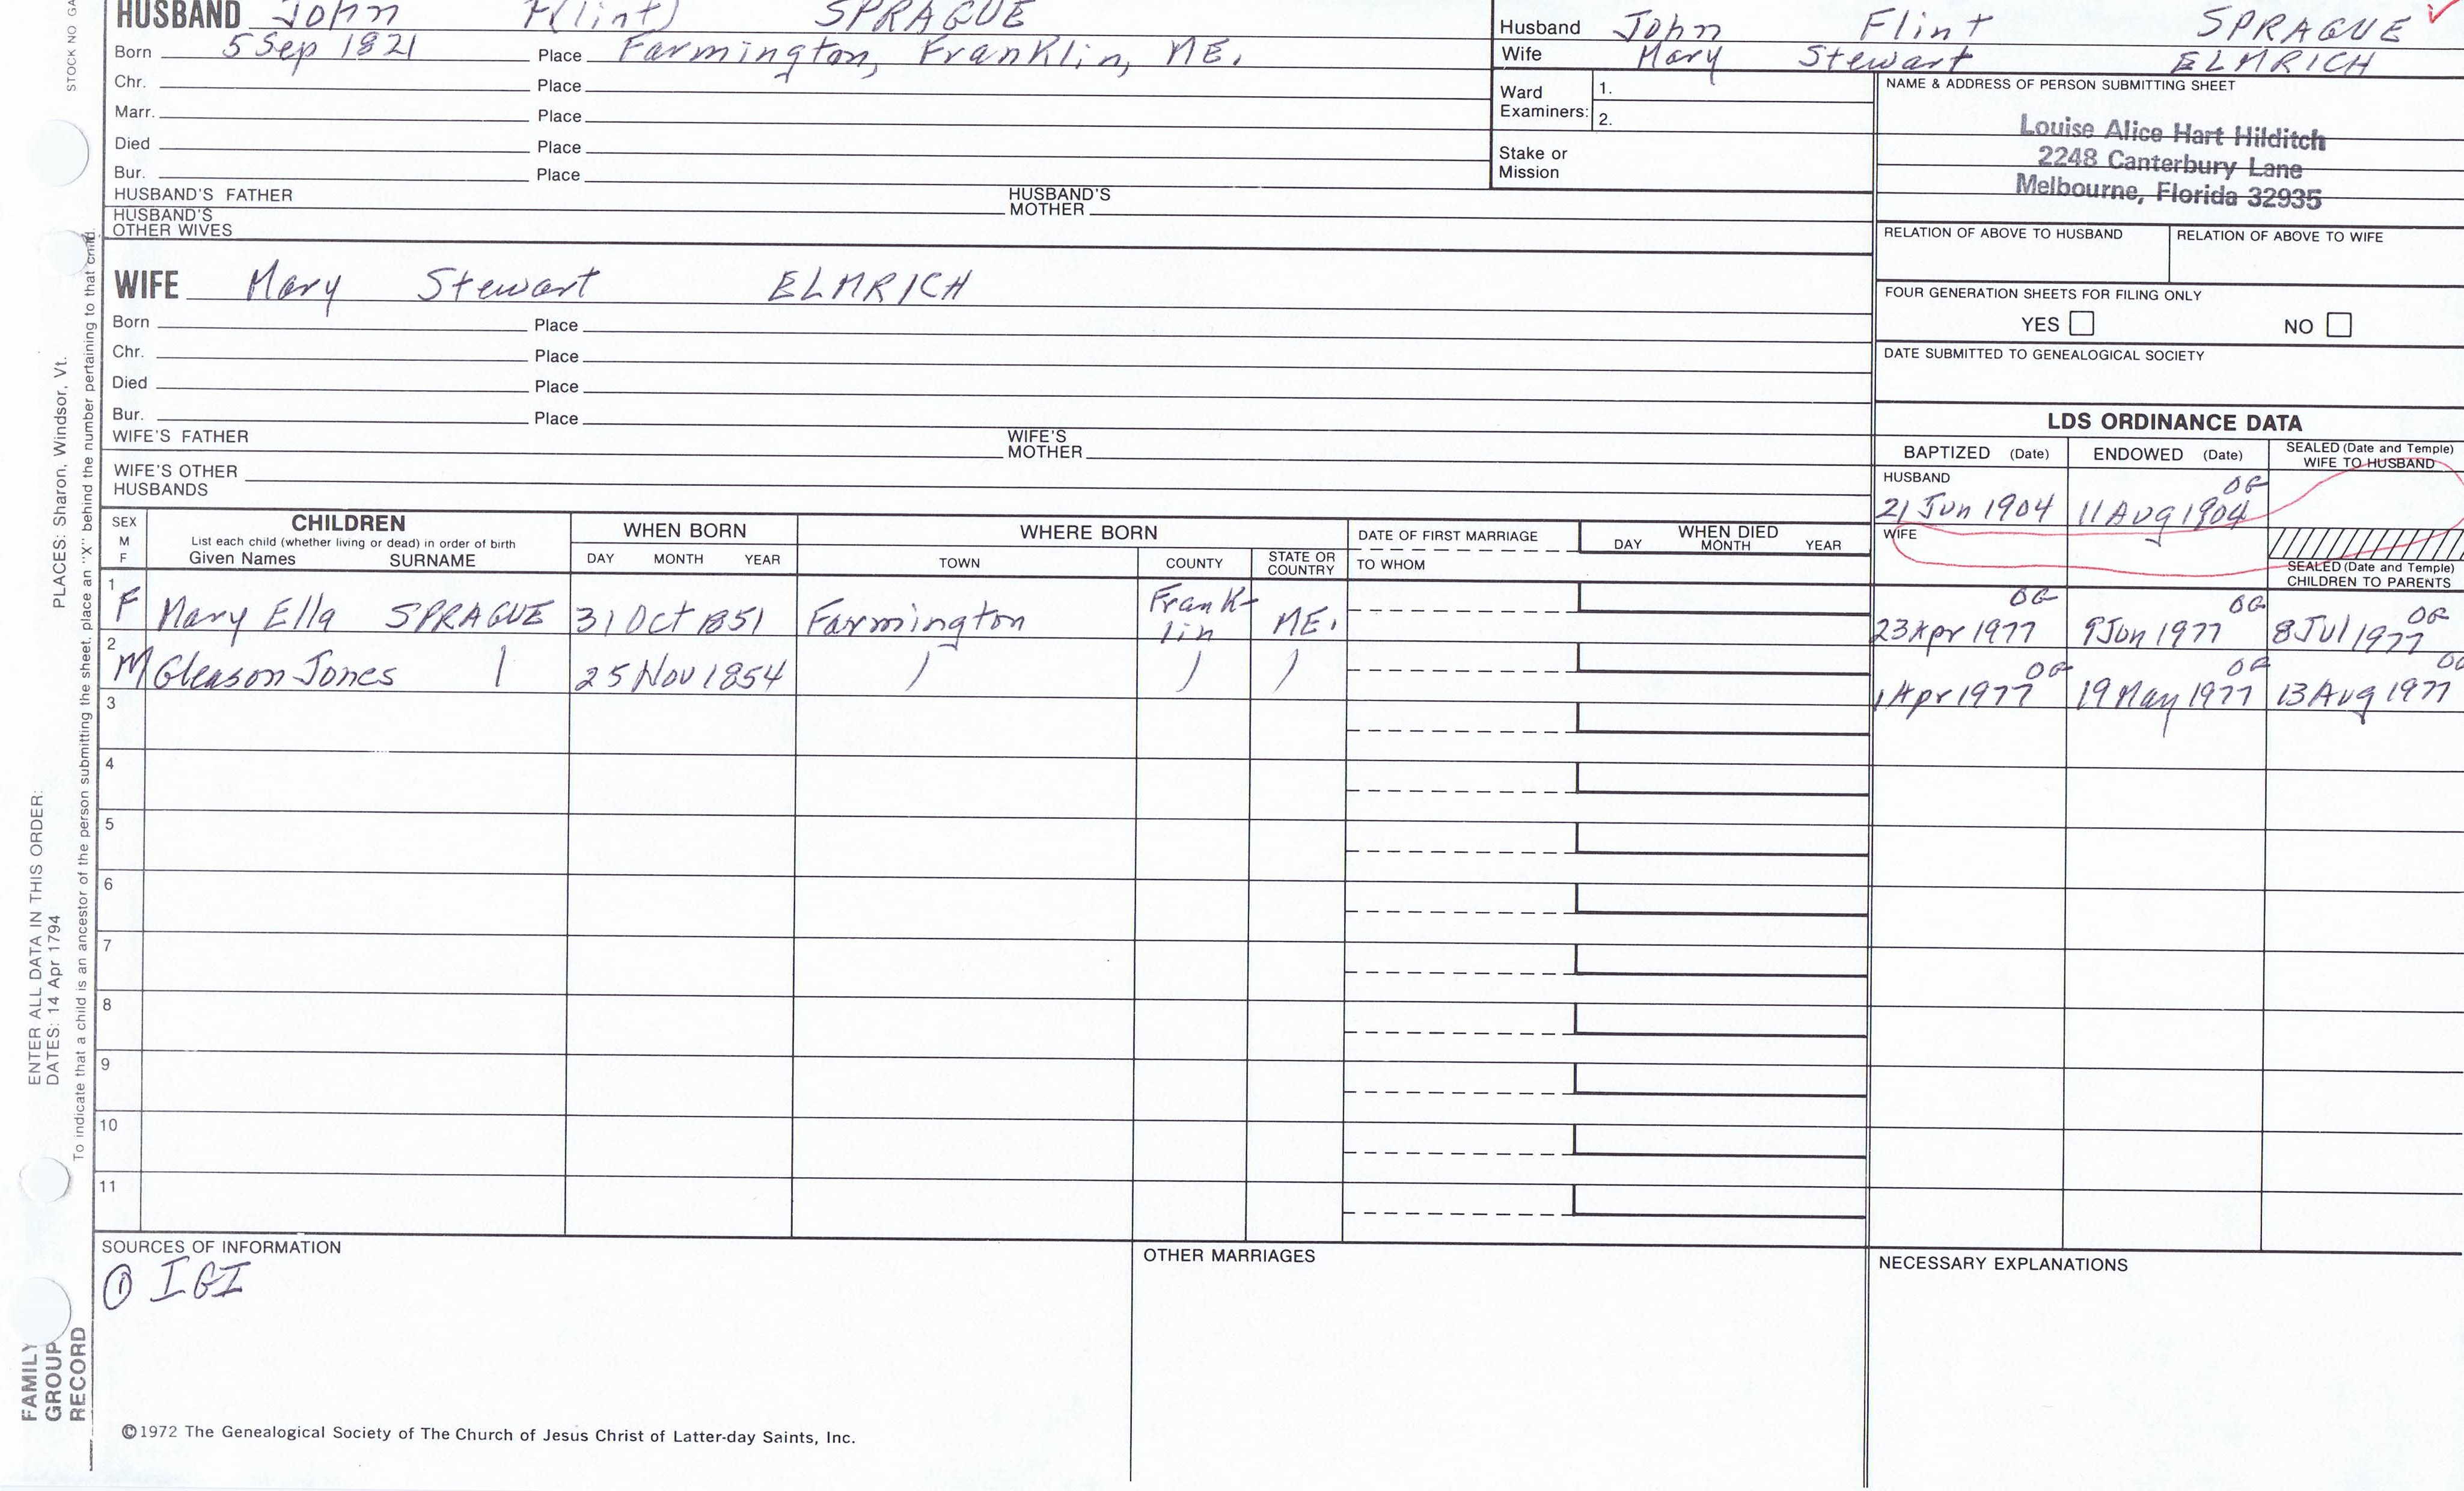 STOCK NO GA
HUSBAND John Flint SPRAGUE
Born 5 Sep 1821 Place Farmington, Franklin, ME.
Chr. Place
Marr. Place
Died Place
Bur. Place
HUSBAND'S FATHER HUSBAND'S MOTHER
HUSBAND'S OTHER WIVES
Husband John Flint SPRAGUE ✓
Wife Mary Stewart ELMRICH
Ward Examiners: 1.
2.
Stake or Mission
NAME & ADDRESS OF PERSON SUBMITTING SHEET
Louise Alice Hart Hilditch
2248 Canterbury Lane
Melbourne, Florida 32935
RELATION OF ABOVE TO HUSBAND RELATION OF ABOVE TO WIFE
FOUR GENERATION SHEETS FOR FILING ONLY
YES NO
DATE SUBMITTED TO GENEALOGICAL SOCIETY
WIFE Mary Stewart ELMRICH
Born Place
Chr. Place
Died Place
Bur. Place
WIFE'S FATHER WIFE'S MOTHER
WIFE'S OTHER HUSBANDS
LDS ORDINANCE DATA
BAPTIZED (Date) ENDOWED (Date) SEALED (Date and Temple) WIFE TO HUSBAND
HUSBAND
OG
21 Jun 1904 11 Aug 1904
WIFE
SEALED (Date and Temple) CHILDREN TO PARENTS
SEX M F
CHILDREN
List each child (whether living or dead) in order of birth
Given Names SURNAME
WHEN BORN
DAY MONTH YEAR
WHERE BORN
TOWN COUNTY STATE OR COUNTRY
DATE OF FIRST MARRIAGE
TO WHOM
WHEN DIED
DAY MONTH YEAR
OG OG OG
1 F Mary Ella SPRAGUE 31 Oct 1851 Farmington Frank-lin ME. 23 Apr 1977 9 Jun 1977 8 Jul 1977
OG OG OG
2 M Gleason Jones 25 Nov 1854 1 Apr 1977 19 May 1977 13 Aug 1977
3
4
5
6
7
8
9
10
11
SOURCES OF INFORMATION
① IGI
OTHER MARRIAGES
NECESSARY EXPLANATIONS
©1972 The Genealogical Society of The Church of Jesus Christ of Latter-day Saints, Inc.
ENTER ALL DATA IN THIS ORDER:
DATES: 14 Apr 1794 PLACES: Sharon, Windsor, Vt.
To indicate that a child is an ancestor of the person submitting the sheet, place an "X" behind the number pertaining to that child.
FAMILY
GROUP
RECORD